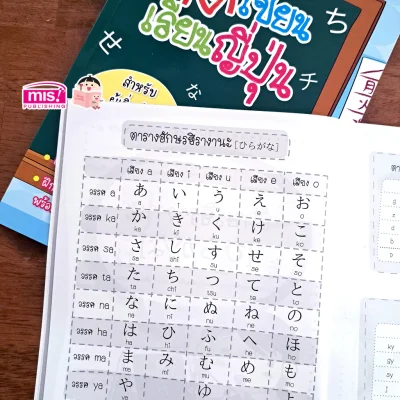 หัดเขียน
เรียนญี่ปุ่น
ち
せ
な
チ
สำหรับ
mis!
PUBLISHING
月
ตารางอักษรฮิรางานะ [ひらがな]
เสียง a เสียง i เสียง u เสียง e เสียง o
วรรค a あ い う え お
a i u e o
วรรค ka か き く け こ
ka ki ku ke ko
วรรค sa さ し す せ そ
sa shi su se so
วรรค ta た ち つ て と
ta chi tsu te to
วรรค na な に ぬ ね の
na ni nu ne no
วรรค ha は ひ ふ へ ほ
ha hi fu he ho
วรรค ma ま み む め も
ma mi mu me mo
วรรค ya や ゆ よ
ky
gy
sh